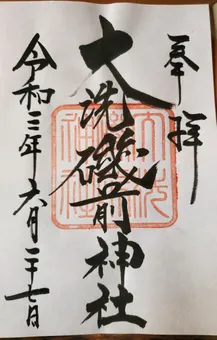 奉拝
大洗磯前神社
令和三年六月二十七日